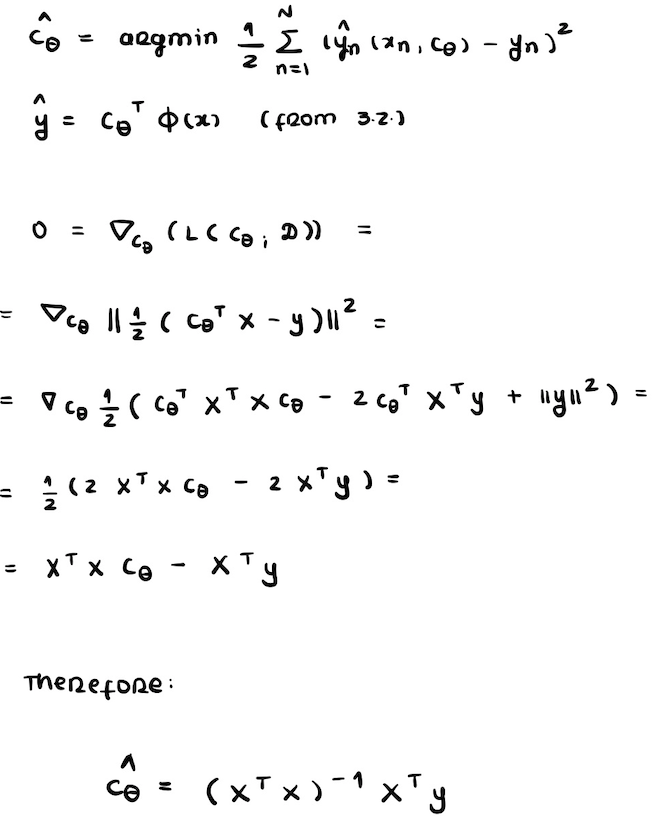 ĉ_θ = argmin 1/2 Σ_{n=1}^{N} (ŷ_n (x_n, c_θ) - y_n)²
ŷ = c_θ^T ϕ(x) (from 3.2.)
0 = ∇_{c_θ} (L(c_θ; D)) =
= ∇_{c_θ} ||1/2 (c_θ^T x - y)||² =
= ∇_{c_θ} 1/2 (c_θ^T X^T X c_θ - 2 c_θ^T X^T y + ||y||²) =
= 1/2 (2 X^T X c_θ - 2 X^T y) =
= X^T X c_θ - X^T y
Therefore:
ĉ_θ = (X^T X)^{-1} X^T y